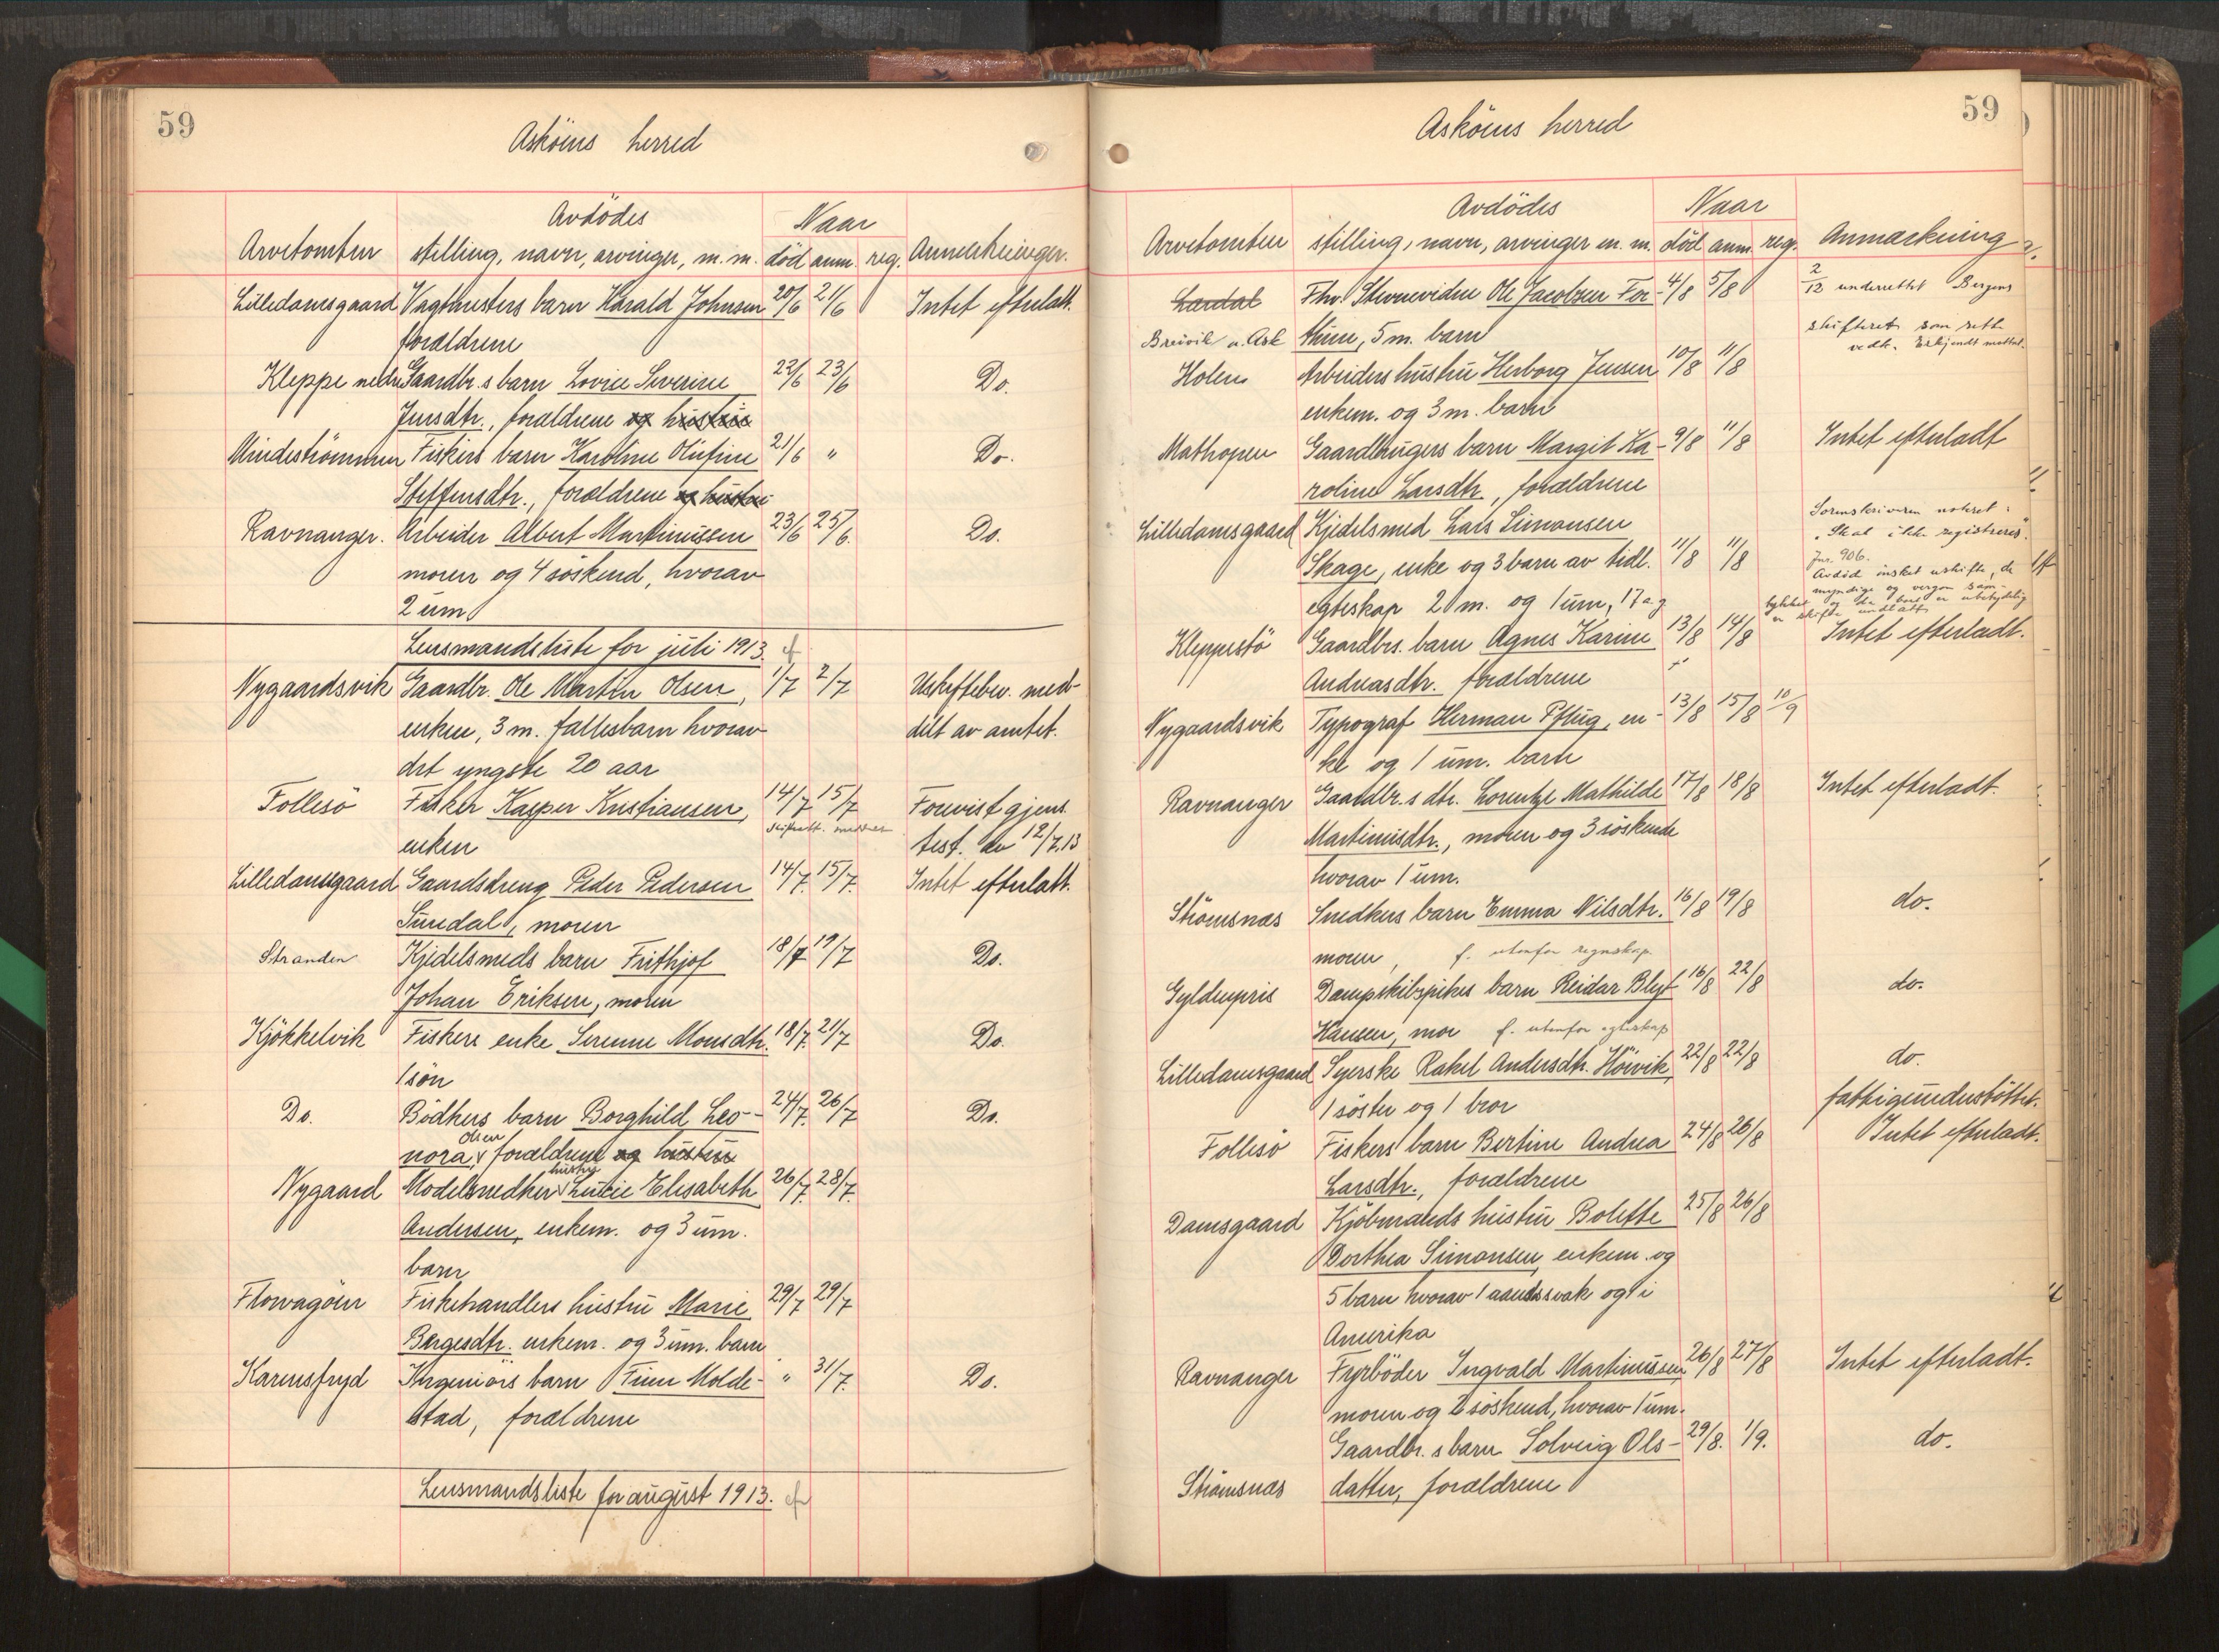 59
Askøens herred
Avdødes
Naar
Arvetomten stilling, navn, arvinger, m. m. død anm. reg. Anmerkninger.
Lilledamsgaard Vagtmesters barn Harald Johnsen 20/6 21/6 Intet efterlatt.
forældrene
Kleppe nedre Gaardbr.s barn Lovise Severine 22/6 23/6 Do.
Jensdtr., forældrene og hustru
Mindestrømmen Fiskers barn Karoline Olufine 21/6 " Do.
Steffensdtr., forældrene og hustru
Ravnanger. Arbeider Albert Martinussen 23/6 25/6. Do.
moren og 4 søskend, hvorav
2 um
Lensmandsliste for juli 1913.
Nygaardsvik Gaardbr. Ole Martin Olsen, 1/7 2/7 Uskiftebev. med-
enken, 3 m. fællesbarn hvorav delt av amtet.
det yngste 20 aar
Follesø Fisker Kasper Kristiansen, 14/7 15/7 Forevist gjens.
enken test. av 12/7.13
Lilledamsgaard Gaardsdreng Peder Pedersen 14/7. 15/7. Intet efterlatt.
Suredal, moren
Stranden Kjedelsmeds barn Frithjof 18/7 19/7 Do.
Johan Eriksen, moren
Kjøkkelvik Fiskers enke Serenne Monsdtr. 18/7. 21/7 Do.
1 søn
Do. Bødkers barn Borghild Leo- 24/7. 26/7 Do.
olsen
nora, forældrene og hustru
hustru
Nygaard Modelsnedker Lucie Elisabeth 26/7. 28/7.
Andersen, enkem. og 3 um.
barn
Florvagøen Fiskehandlers hustru Marie 29/7 29/7
Børgesdtr. enkem. og 3 um. barn
Karensfryd Ingeniørs barn Finn Molde- " 31/7. Do.
stad, forældrene
Lensmandsliste for august 1913.
59
Askøens herred
Avdødes
Naar
Arvetomten stilling, navn, arvinger m. m. død anm. reg. Anmærkning
Laxdal Fhv. Stevnevidne Ole Jacobsen For- 4/8 5/8 2/12 underrettet Bergens
Breivik u. Ask thun, 5 m. barn skifteret som rette
vedk. Erkjendt mottat.
Holen Arbeiders hustru Herborg Jensen 10/8 11/8
enkem. og 3 m. barn
Mathopen Gaardbrugers barn Margit Ka- 9/8 11/8 Intet efterladt
roline Larsdtr., forældrene
Lilledamsgaard Kjedelsmed Lars Simonsen Sorenskriveren noteret:
Skage, enke og 3 barn av tidl. 11/8 11/8 "Skal ikke registreres".
Jnr. 906.
Avdød ønsket uskifte, de
myndige og vergen sam-
tykket og da boet er ubetydelig
er skifte undlatt
egteskap 2 m. og 1 um, 17 a. g.
Kleppestø Gaardbrs. barn Agnes Karine 13/8 14/8 Intet efterladt.
Andreasdtr. forældrene
Nygaardsvik Typograf Herman Pflug, en- 13/8 15/8 10/9
ke og 1 um. barn
Ravnanger Gaardbr.s dtr. Lorentze Mathilde 17/8 18/8 Intet efterladt.
Martinusdtr., moren og 3 søskende
hvorav 1 um.
Strømsnæs Snedkers barn Emma Nilsdtr. 16/8 19/8 do.
moren, f. utenfor egteskap
Gyldenpris Dampskibspikes barn Reidar Blyt 16/8 22/8 do.
Hansen, mor f. utenfor egteskap
Lilledamsgaard Syerske Rakel Andersdtr. Høivik, 22/8 22/8 do.
1 søster og 1 bror fattigunderstøttet.
Follesø Fiskers barn Bertine Andrea 24/8 26/8 Intet efterladt.
Larsdtr., forældrene
Damsgaard Kjøbmands hustru Bolette 25/8 26/8
Dorthea Simonsen, enkem. og
5 barn hvorav 1 aandssvak og 1 i
Amerika
Ravnanger Fyrbøder Ingvald Martinussen, 26/8 27/8 Intet efterladt.
moren og 2 søskend, hvorav 1 um.
Gaardbr.s barn Solveig Ols- 29/8. 1/9. do.
Strømsnæs datter, forældrene